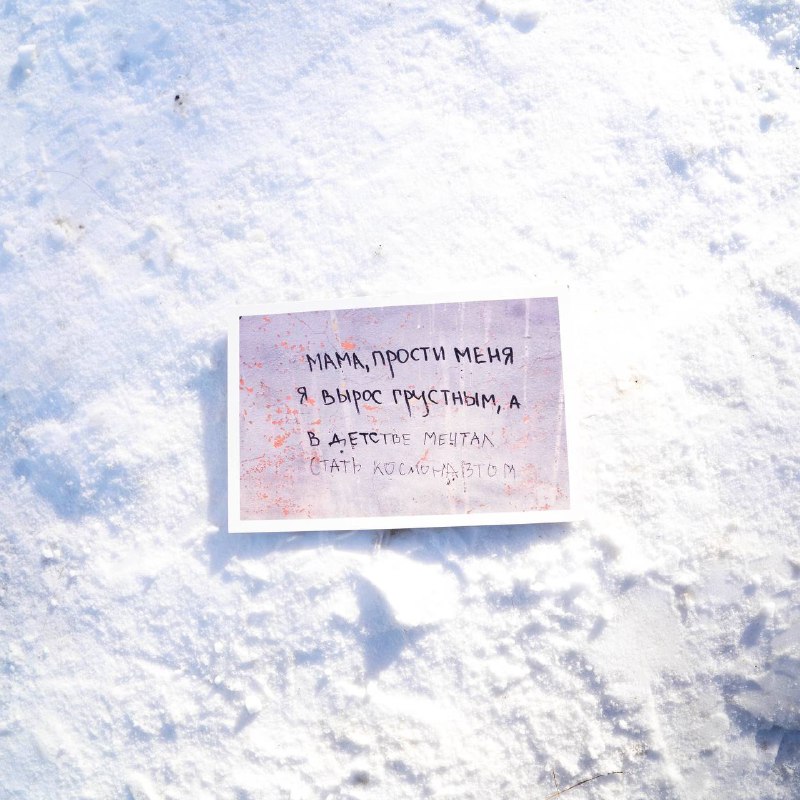 МАМА, ПРОСТИ МЕНЯ
Я ВЫРОС ГРУСТНЫМ, А
В ДЕТСТВЕ МЕЧТАЛ
СТАТЬ КОСМОНАВТОМ